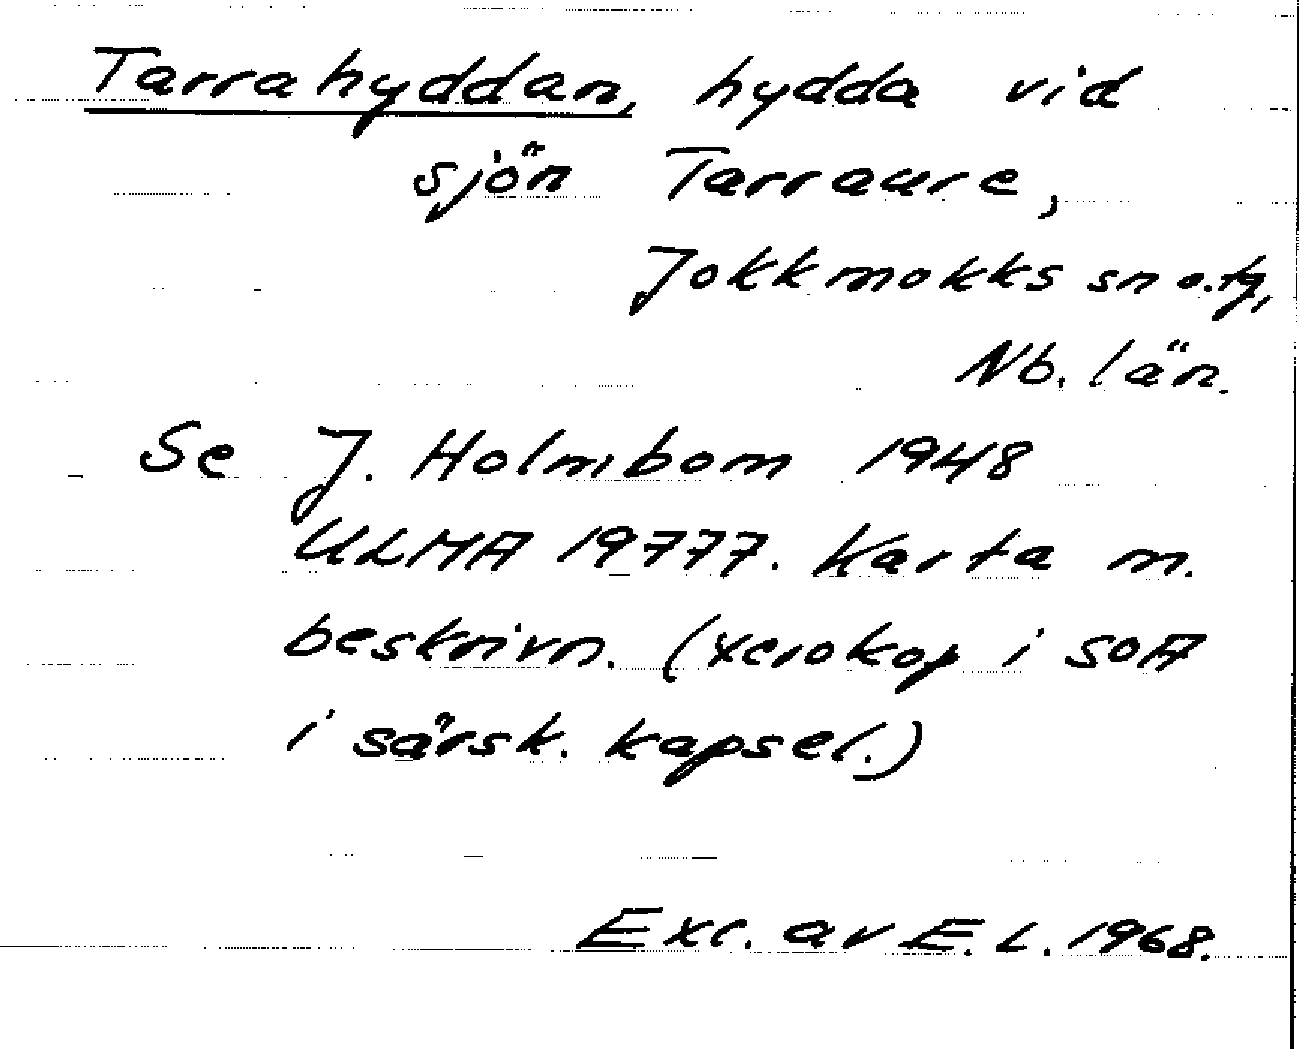 Tarrahyddan, hydda vid
sjön Tarraure,
Jokkmokks sn o. tg,
Nb. län.
Se J. Holmbom 1948
ULMA 19777. Karta m.
beskrivn. (xerokop i SOA
i särsk. kapsel.)
Exc. av E. L. 1968.